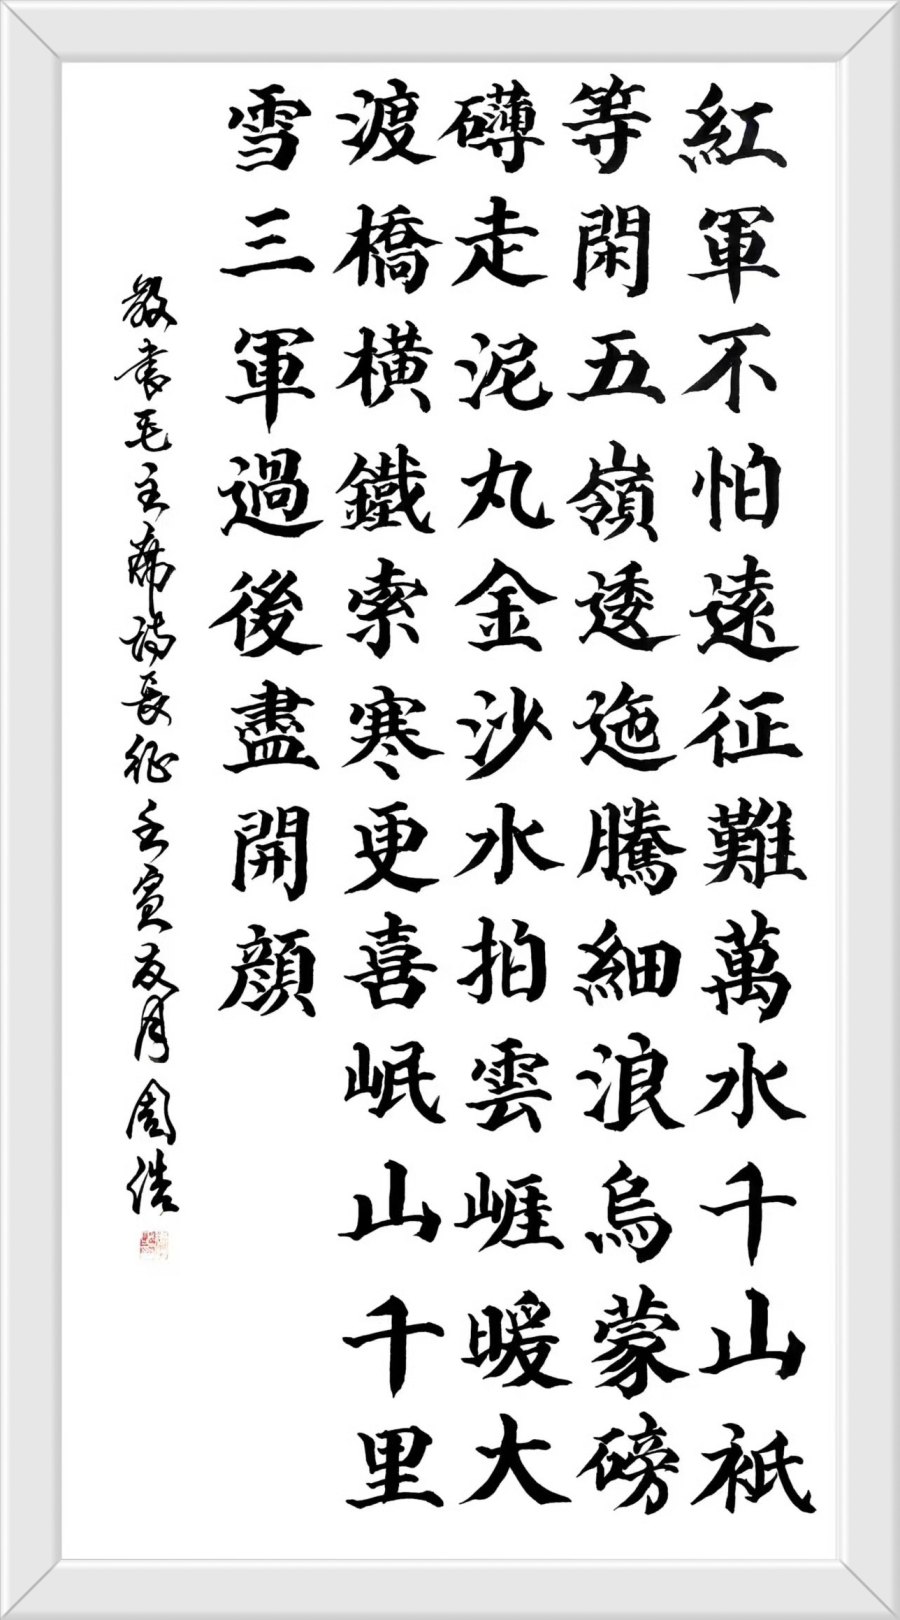 紅軍不怕遠征難萬水千山衹
等閑五嶺逶迤騰細浪烏蒙磅
礴走泥丸金沙水拍雲崖暖大
渡橋橫鐵索寒更喜岷山千里
雪三軍過後盡開顔
敬書毛主席詩長征壬寅夏月周浩